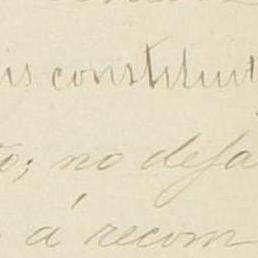 is constituut
o; no defa
á recom